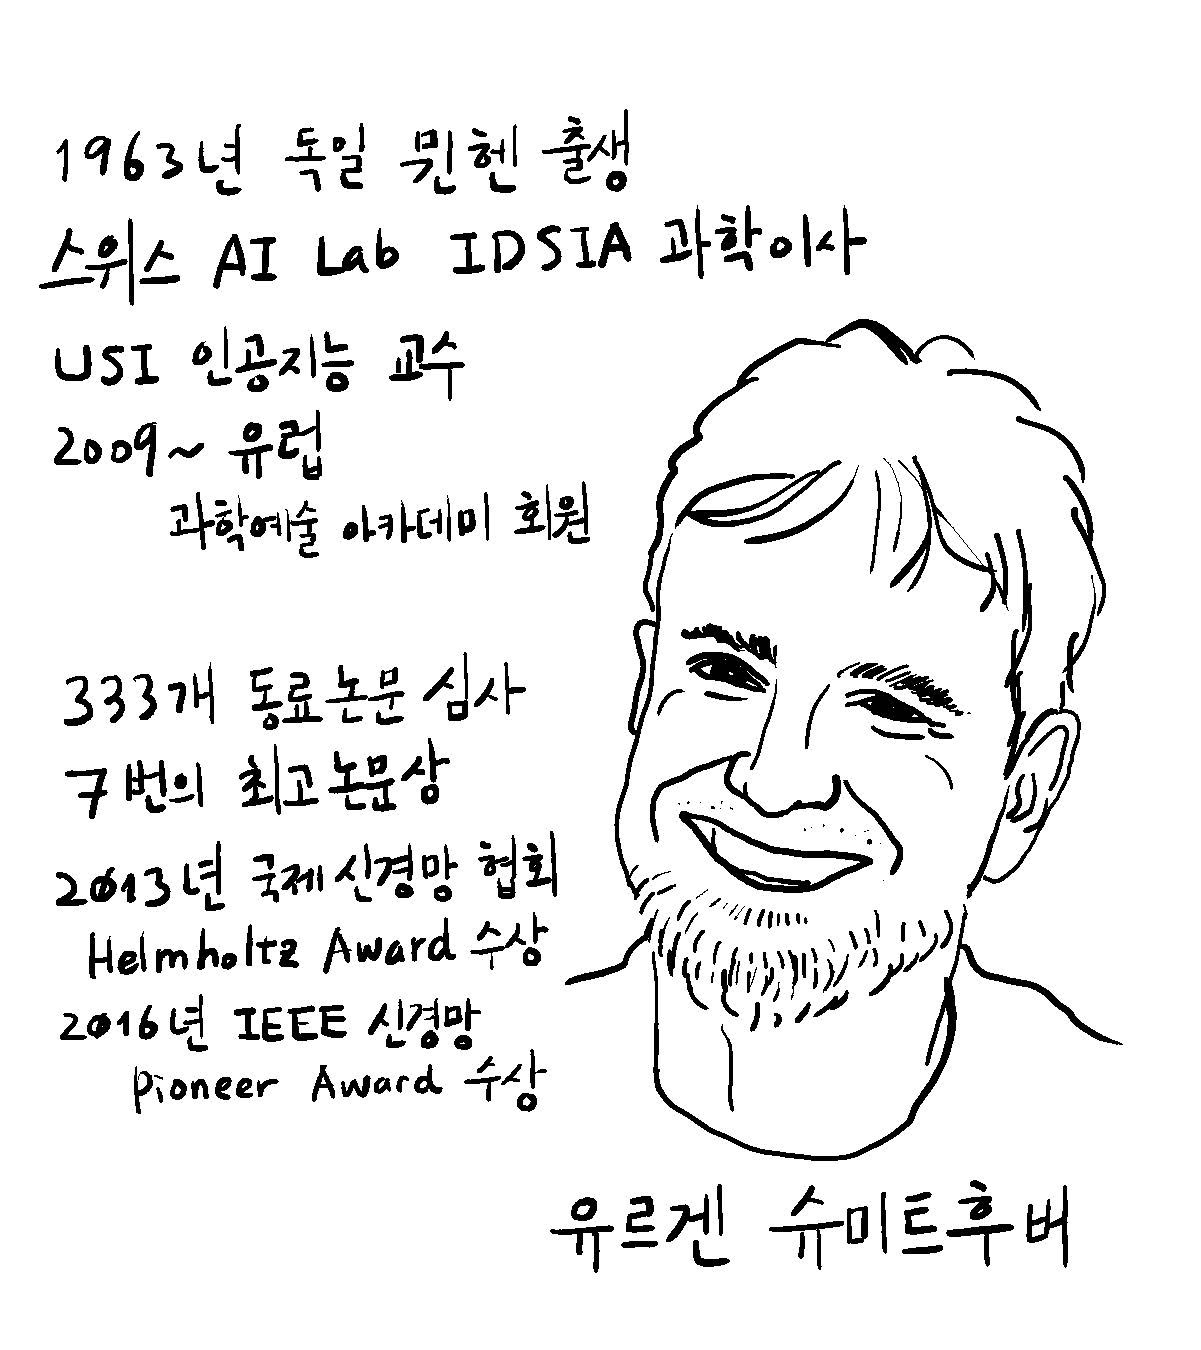 1963년 독일 뮌헨 출생
스위스 AI Lab IDSIA 과학이사
USI 인공지능 교수
2009~ 유럽
과학예술 아카데미 회원
333개 동료논문 심사
7번의 최고논문상
2013년 국제신경망 협회
Helmholtz Award 수상
2016년 IEEE 신경망
Pioneer Award 수상
유르겐 슈미트후버